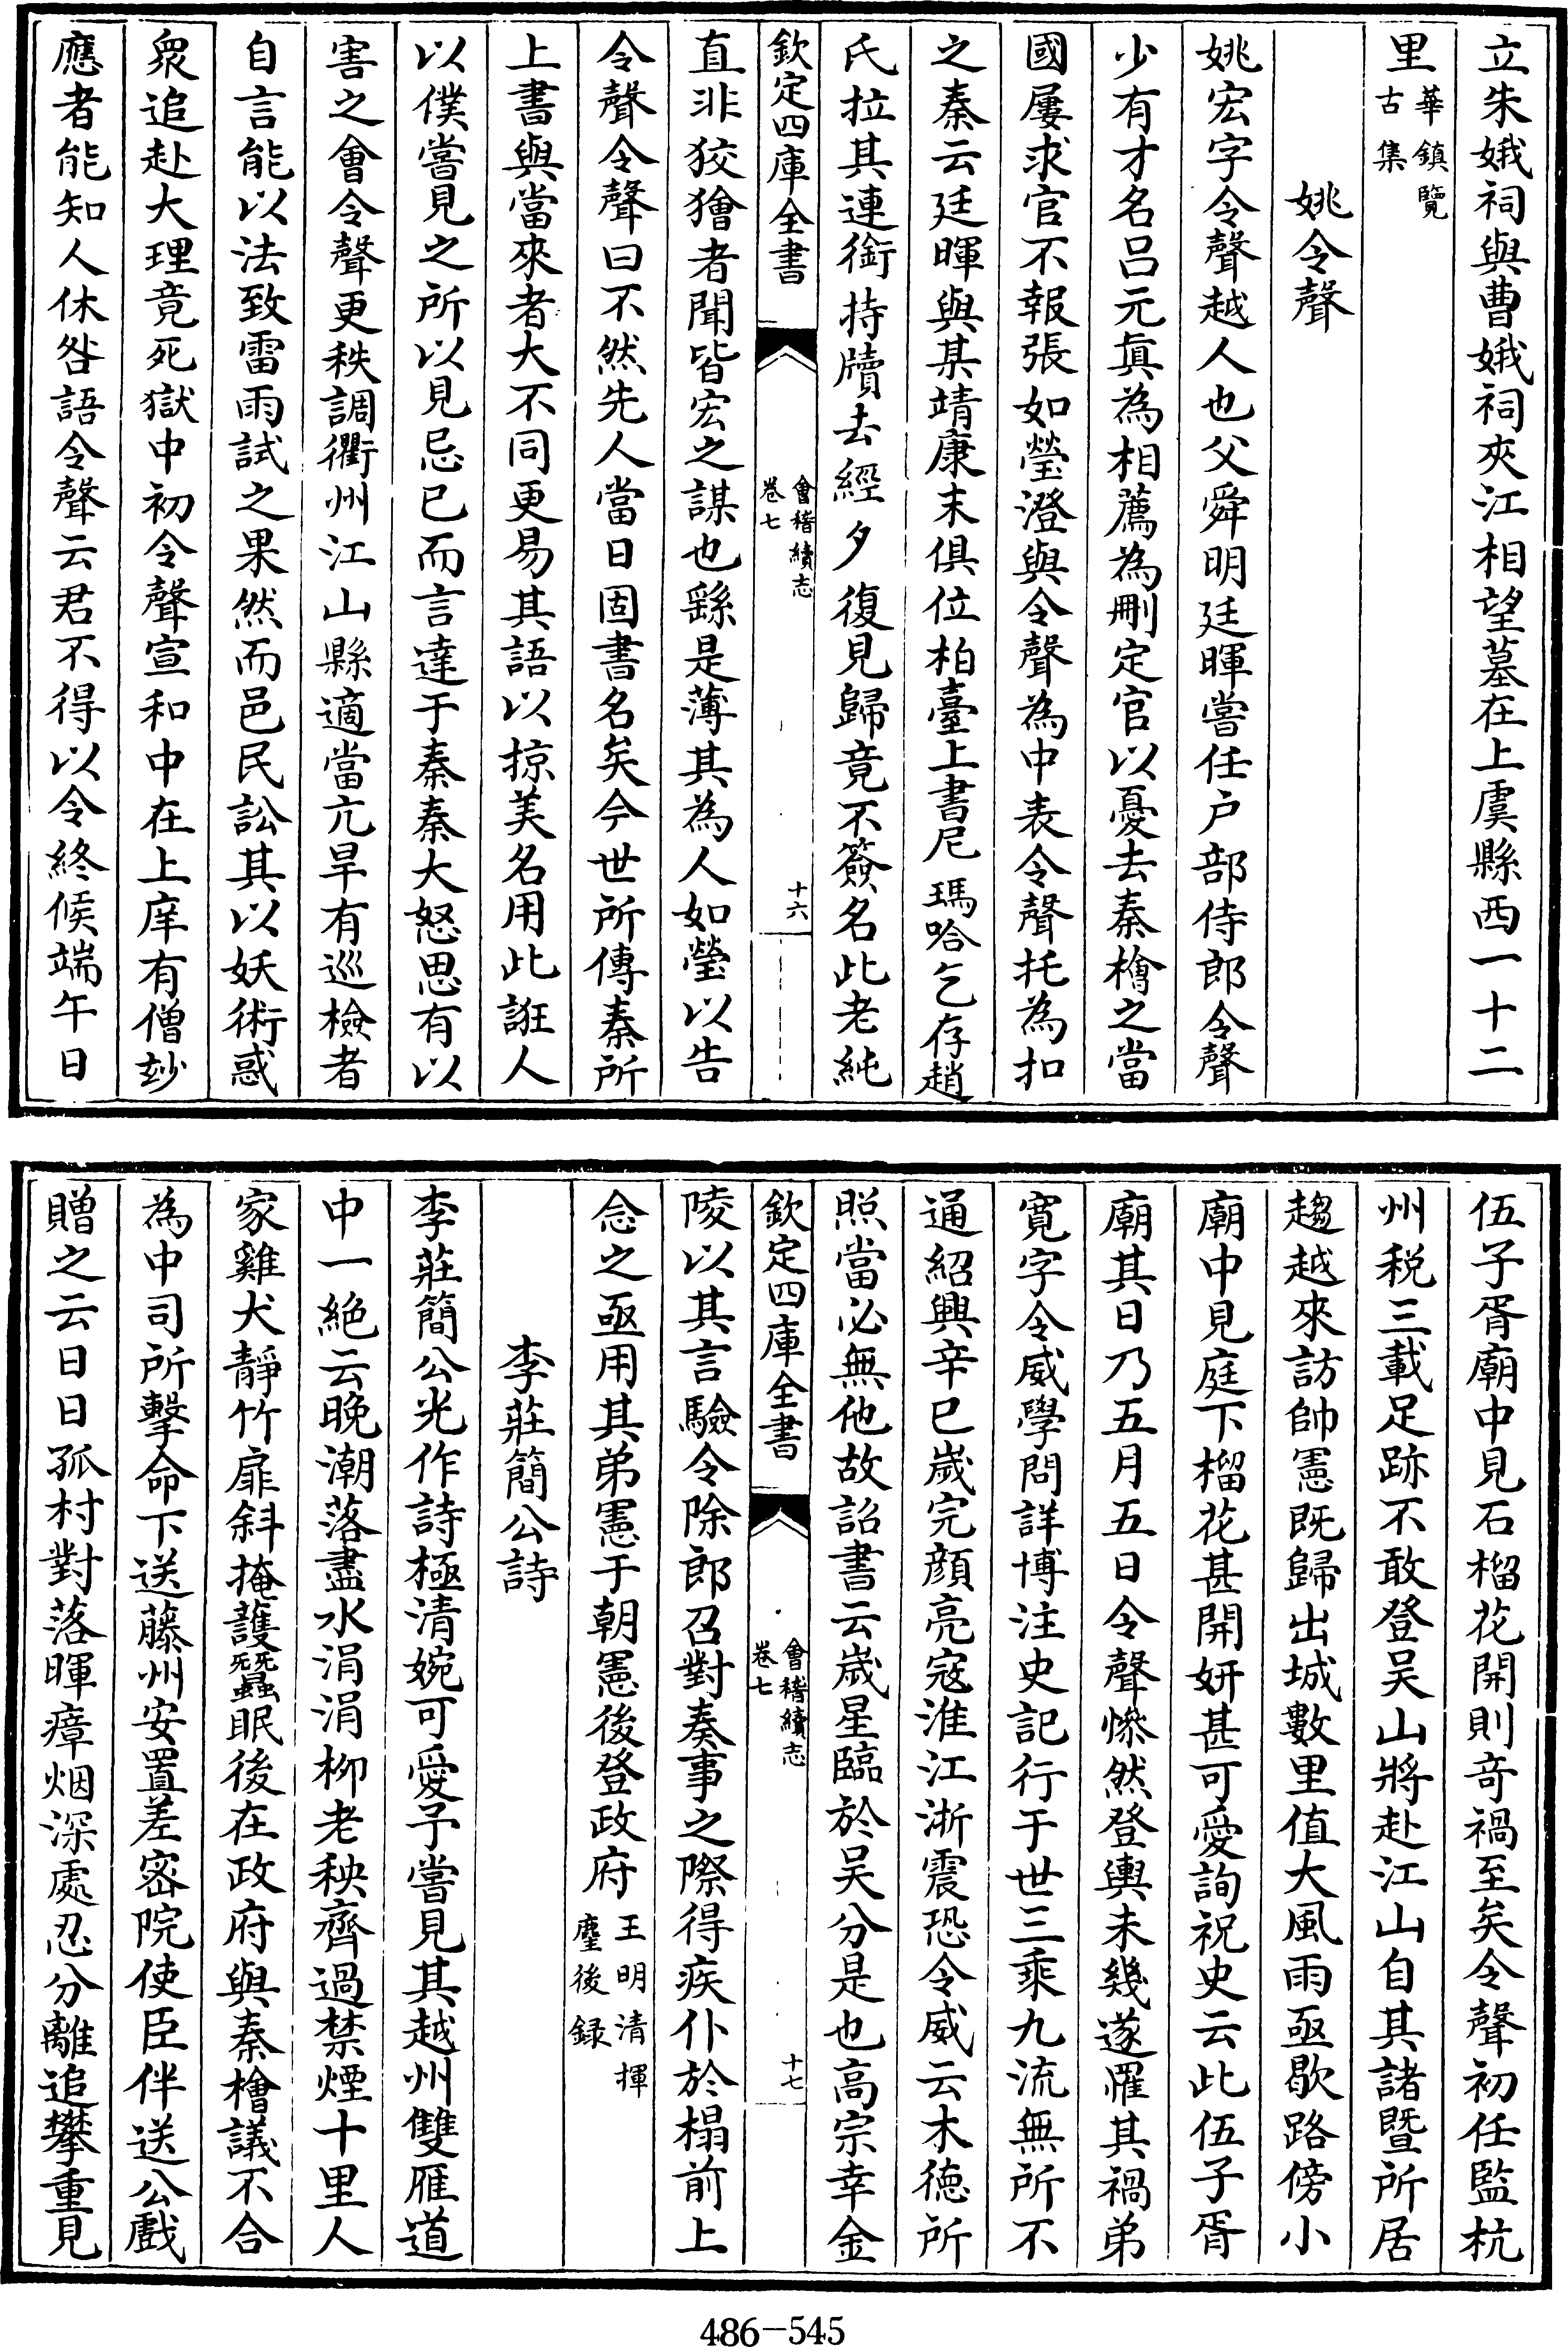 立朱娥祠與曹娥祠夾江相望墓在上虞縣西一十二
里華鎮覽古集
姚令聲
姚宏字令聲越人也父舜明廷暉嘗任户部侍郎令聲
少有才名呂元真為相薦為刪定官以憂去秦檜之當
國屢求官不報張如瑩澄與令聲為中表令聲托為扣
之秦云廷暉與某靖康末俱位柏臺上書尼瑪哈乞存趙
氏拉其連銜持牘去經夕復見歸竟不簽名此老純
欽定四庫全書
會稽續志
卷七
十六
直非狡獪者聞皆宏之謀也繇是薄其為人如瑩以告
令聲令聲曰不然先人當日固書名矣今世所傳秦所
上書與當來者大不同更易其語以掠美名用此誑人
以僕嘗見之所以見忌已而言達于秦秦大怒思有以
害之會令聲更秩調衢州江山縣適當亢旱有巡檢者
自言能以法致雷雨試之果然而邑民訟其以妖術惑
衆追赴大理竟死獄中初令聲宣和中在上庠有僧玅
應者能知人休咎語令聲云君不得以令終候端午日
伍子胥廟中見石榴花開則奇禍至矣令聲初任監杭
州税三載足跡不敢登吴山將赴江山自其諸暨所居
趨越來訪帥憲既歸出城數里值大風雨亟歇路傍小
廟中見庭下榴花甚開妍甚可愛詢祝史云此伍子胥
廟其日乃五月五日令聲慘然登輿未幾遂罹其禍弟
寛字令威學問詳博注史記行于世三乘九流無所不
通紹興辛巳歲完顔亮寇淮江浙震恐令威云木德所
照當必無他故詔書云歲星臨於吴分是也高宗幸金
欽定四庫全書
會稽續志
卷七
十七
陵以其言驗令除郎召對奏事之際得疾仆於榻前上
念之亟用其弟憲于朝憲後登政府王明清揮麈後録
李莊簡公詩
李莊簡公光作詩極清婉可愛予嘗見其越州雙雁道
中一絶云晚潮落盡水涓涓柳老秧齊過禁煙十里人
家雞犬靜竹扉斜掩護蠶眠後在政府與秦檜議不合
為中司所擊命下送藤州安置差密院使臣伴送公戲
贈之云日日孤村對落暉瘴烟深處忍分離追攀重見
486-545